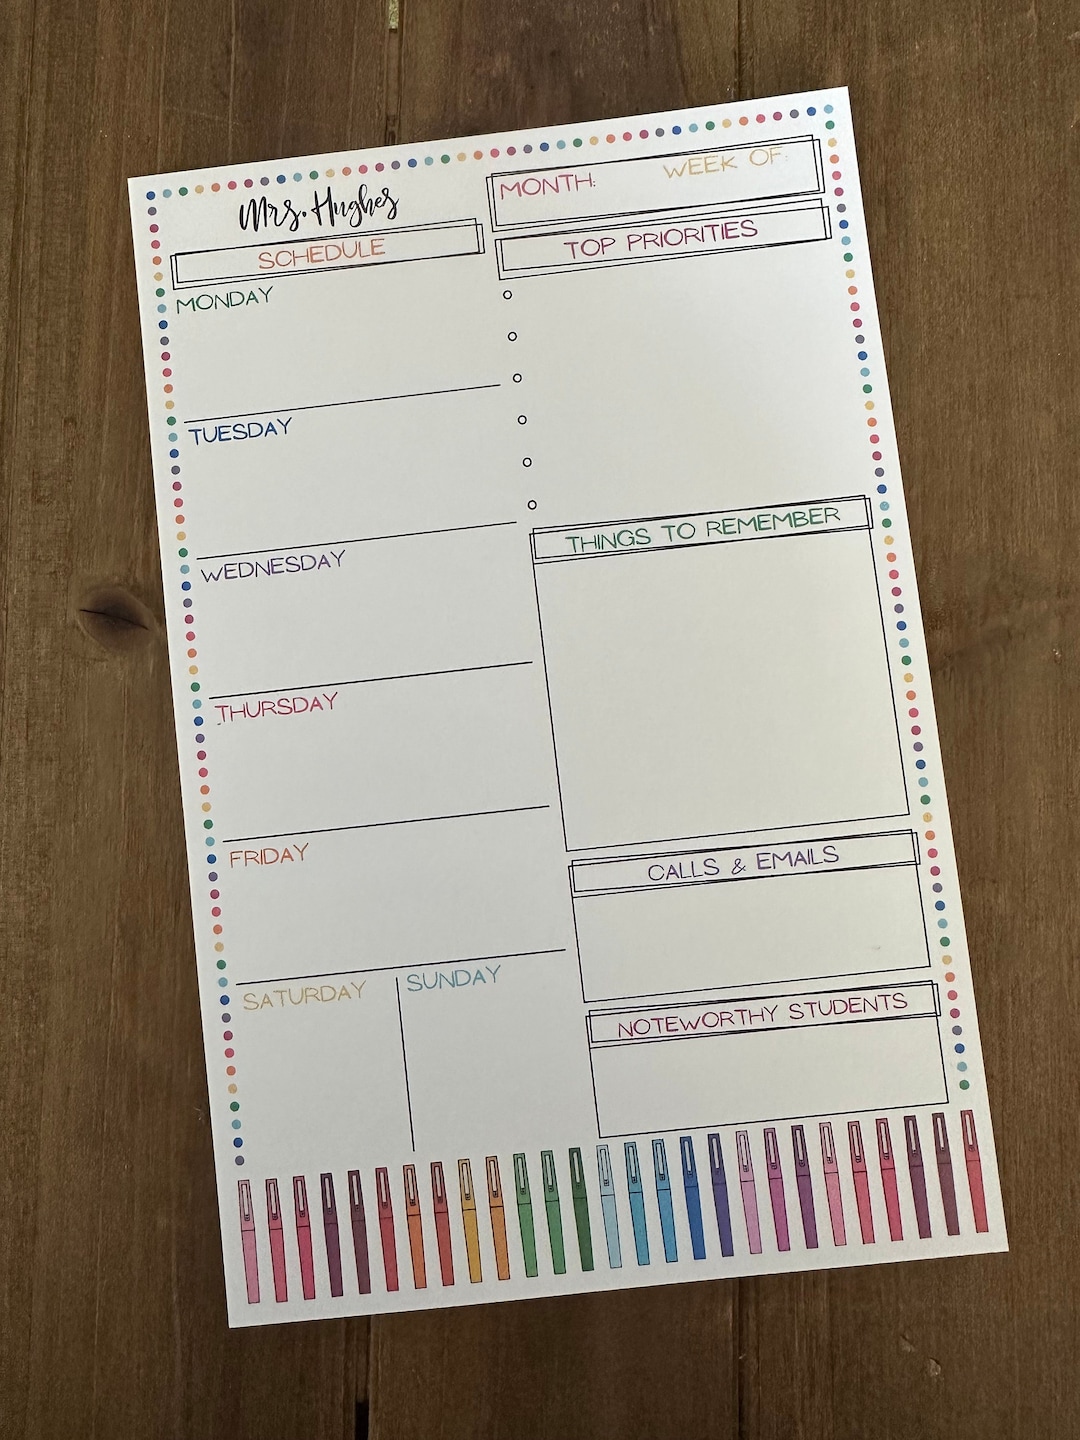 Mrs. Hughes
MONTH: WEEK OF:
SCHEDULE
TOP PRIORITIES
MONDAY
TUESDAY
WEDNESDAY
THURSDAY
FRIDAY
SATURDAY
SUNDAY
THINGS TO REMEMBER
CALLS & EMAILS
NOTEWORTHY STUDENTS